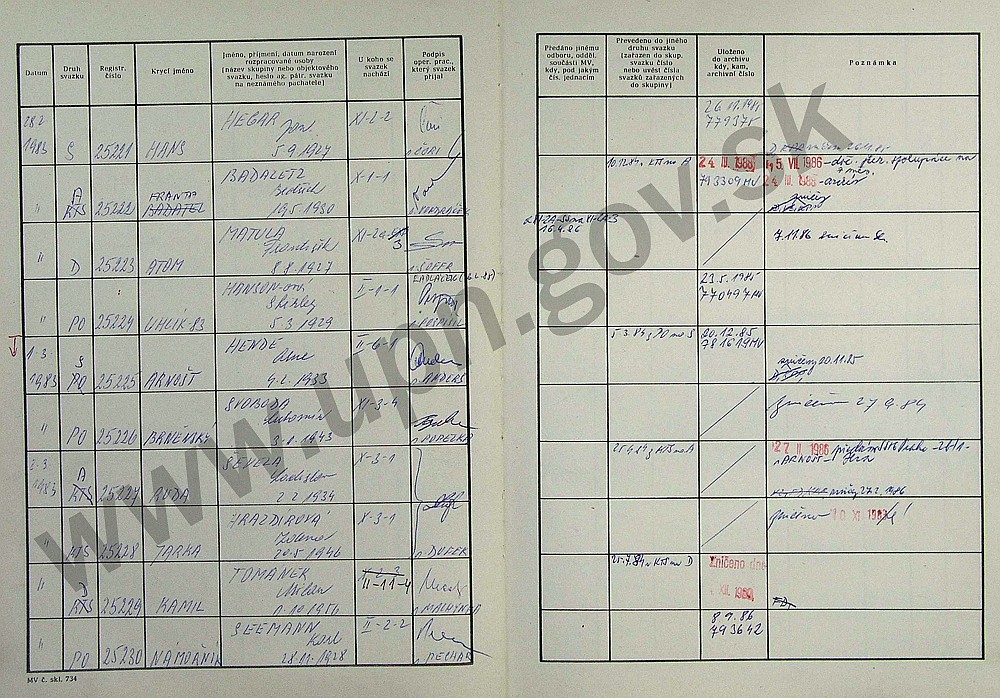 Datum
Druh
svazku
Registr.
číslo
Krycí jméno
Jméno, příjmení, datum narození
rozpracované osoby
(název skupiny nebo objektového
svazku, heslo ag. pátr. svazku
na neznámého pachatele)
U koho se
svazek
nachází
Podpis
oper. prac.,
který svazek
přijal
Předáno jinému
odboru, odděl.
součásti MV,
kdy, pod jakým
čís. jednacím
Převedeno do jiného
druhu svazku
(zařazen do skup.
svazku číslo
nebo uvést čísla
svazků zařazených
do skupiny)
Uloženo
do archivu
kdy, kam,
archivní číslo
Poznámka
28.2
1983 S 25221 HANS
HEGAR
Jan
5.9.1927
XI-2-2
26.11.1985
779375
" A
KTS 25222 FRANTA
BADATEL
BADALETZ
Bedřich
19.5.1930
X-1-1
10.12.84 z KTS na A
24 III. 1988
793309 MV
1, 5. VII. 1986
24 III. 1988
" D 25223 ATOM
MATULA
František
8.8.1927
XI-2a-3
16.4.86
7.11.86
" PO 25224 UHLÍK-83
HANSON-ová
Shirley
5.3.1929
II-1-1
n. POSPÍŠIL
23.5.1985
770497 MV
1.3
1983 S
PO 25225 ARNOŠT
HENDE
4.2.1933
II-6-1
n. ANDERS
5.3.84 z PO na S
20.12.85
781619 MV
zničeny 20.11.85
" PO 25226 BRNĚNSKÝ
SVOBODA
Lubomír
3.8.1943
XI-3-4
n. POPELKA
Zničeno 27.9.84
2.3.
1983 A
KTS 25227 RUDA
ŠEVELA
Ladislav
2.2.1934
X-3-1
25.4.84 z KTS na A
27 II 1986
n ARNOŠT
27.2.1986
" KTS 25228 JARKA
HRAZDIROVÁ
Zdena
20.5.1946
X-3-1
zničeno 10 XI. 1983
" D
KTS 25229 KAMIL
TOMANEK
Milan
1.10.1956
II-11-4
25.7.84 z KTS na D
Zničeno dne
XII. 1989
" PO 25230 NÁMOŘNÍK
SEEMANN
Karl
28.11.1928
II-2-2
n. PECHAR
8.9.86
793642
MV č. skl. 734
www.upn.gov.sk